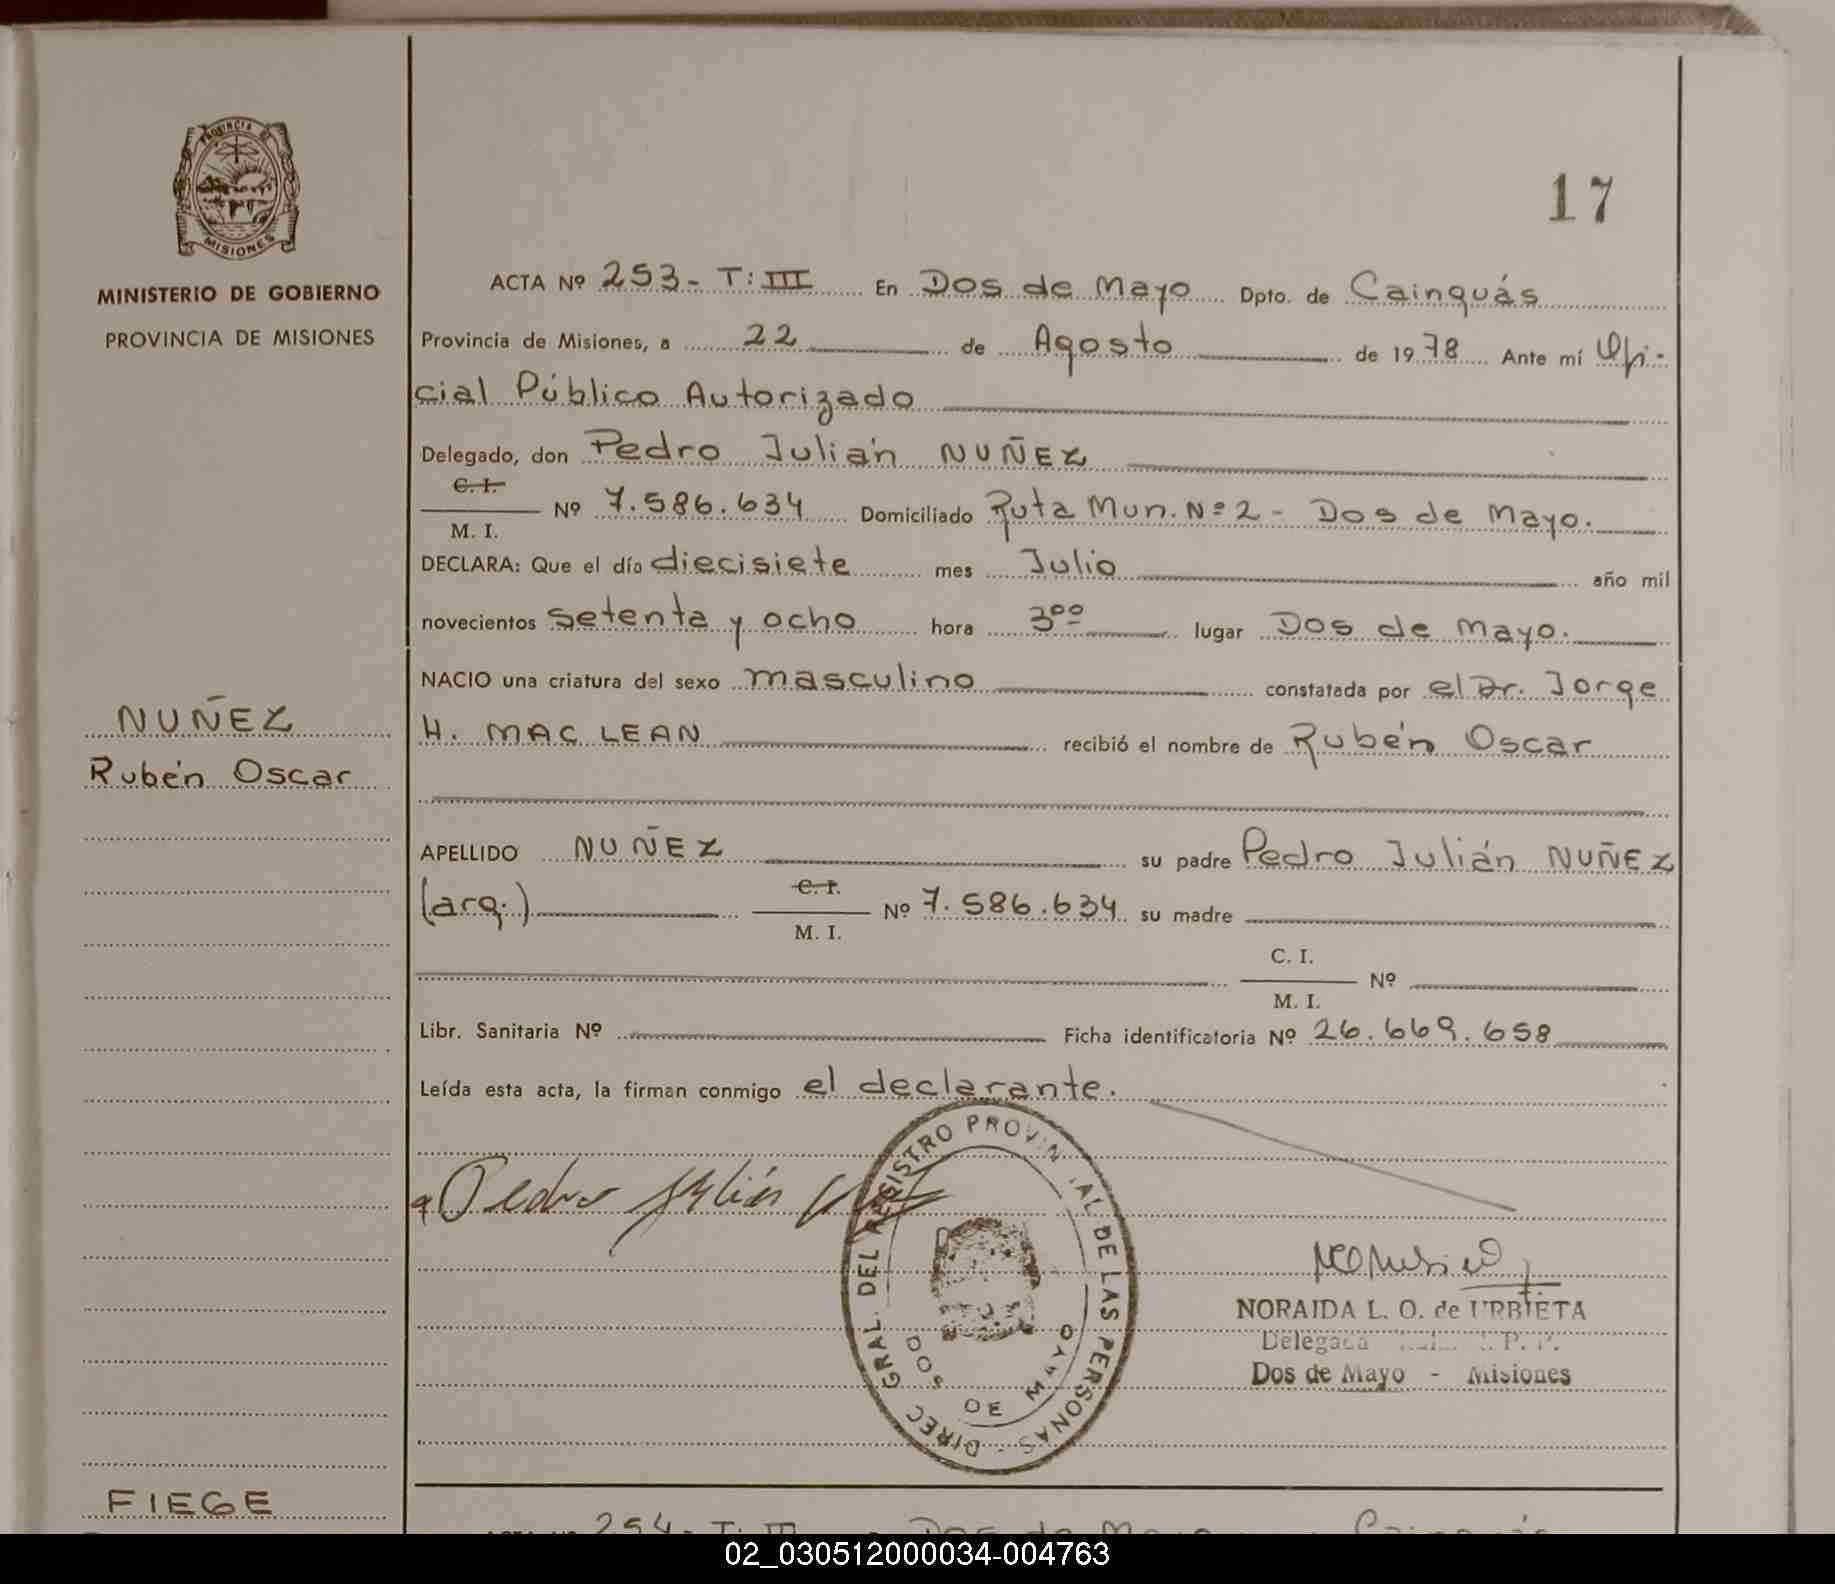 PROVINCIA DE
MISIONES
MINISTERIO DE GOBIERNO
PROVINCIA DE MISIONES
NUÑEZ
Rubén Oscar
FIEGE
17
ACTA Nº 253- T: III En Dos de Mayo Dpto. de Cainguás
Provincia de Misiones, a 22 de Agosto de 1978 Ante mí Ofi-
cial Público Autorizado
Delegado, don Pedro Julián NUÑEZ
C. I.
Nº 7.586.634 Domiciliado Ruta Mun. Nº 2 - Dos de Mayo.
M. I.
DECLARA: Que el día diecisiete mes Julio año mil
novecientos setenta y ocho hora 3ºº lugar Dos de Mayo.
NACIO una criatura del sexo masculino constatada por el Dr. Jorge
H. MAC LEAN recibió el nombre de Rubén Oscar
APELLIDO NUÑEZ su padre Pedro Julián NUÑEZ
(arg.) C. I. Nº 7.586.634 su madre
M. I.
C. I.
Nº
M. I.
Libr. Sanitaria Nº Ficha identificatoria Nº 26.669.658
Leída esta acta, la firman conmigo el declarante.
Pedro Julián
DIREC GRAL. DEL REGISTRO PROVINCIAL DE LAS PERSONAS -
DOS DE MAYO
NORAIDA L. O. de URBIETA
Delegada P. P.
Dos de Mayo - Misiones
254- T: III Dos de Mayo Cainguás
02_030512000034-004763